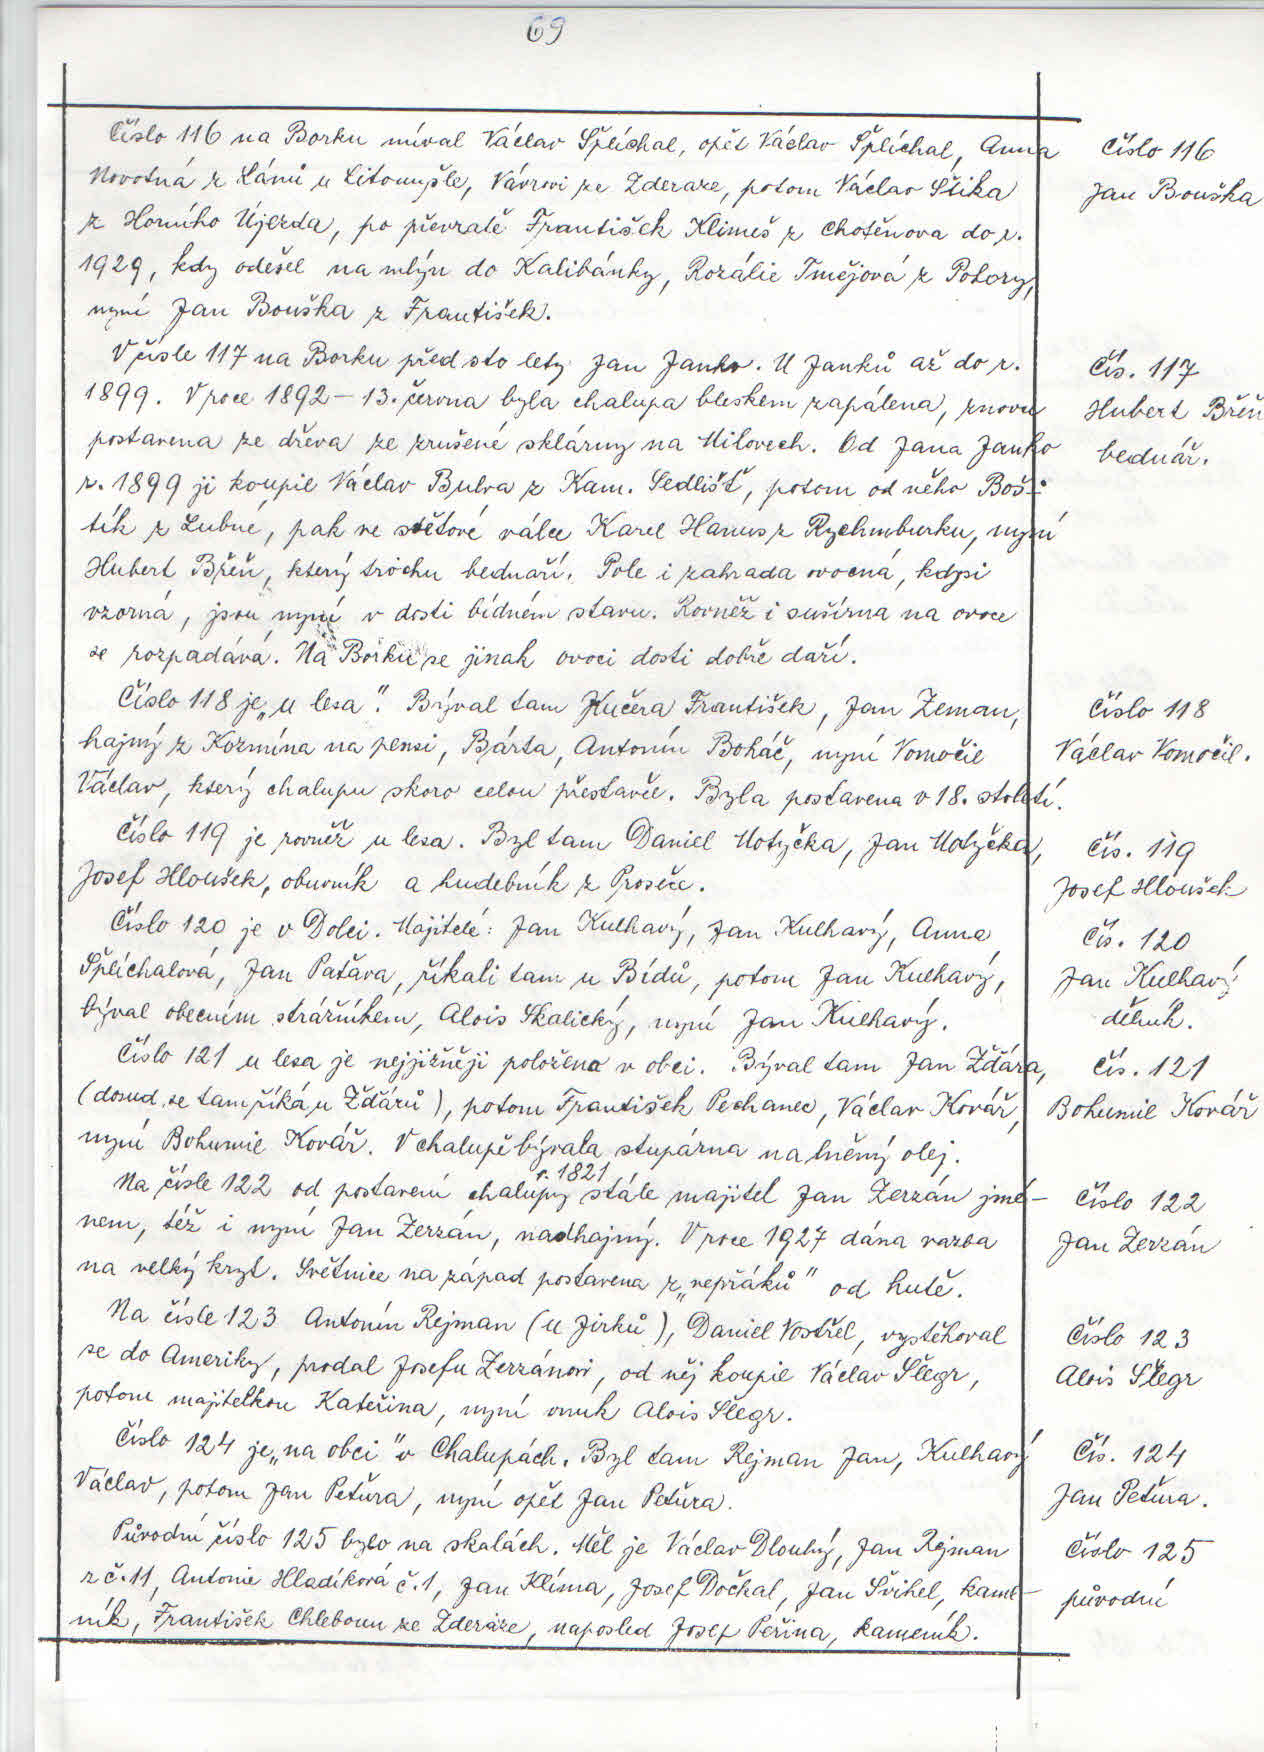 69
Číslo 116 na Borku míval Václav Šplíchal, opět Václav Šplíchal, Anna
Novotná z Lánů u Litomyšle, Vávrovi ze Zderaze, potom Václav Štika
z Horního Újezda, po převratě František Klimeš z Chotěnova do r.
1929, kdy odešel na mlýn do Kalibánky, Rozálie Tmějová z Pokory,
nyní Jan Bouška z František.
Číslo 116
Jan Bouška
V čísle 117 na Borku před sto lety Jan Janko. U Janků až do r.
1899. V roce 1892 – 13. června byla chalupa bleskem zapálena, znovu
postavena ze dřeva ze zrušené sklárny na Milovech. Od Jana Janko
r. 1899 ji koupil Václav Bulva z Kam. Sedlišť, potom od něho Boš-
tík z Lubné, pak ve světové válce Karel Hanus z Rychmburku, nyní
Hubert Břeň, který trochu bednaří. Pole i zahrada ovocná, kdysi
vzorná, jsou nyní v dosti bídném stavu. Rovněž i sušírna na ovoce
se rozpadává. Na Borku se jinak ovoci dosti dobře daří.
Čís. 117
Hubert Břeň
bednář.
Číslo 118 je „u lesa“. Býval tam Kučera František, Jan Zeman,
hajný z Kozmína na pensi, Bárta, Antonín Boháč, nyní Vomočil
Václav, který chalupu skoro celou přestavěl. Byla postavena v 18. století.
Číslo 118
Václav Vomočil.
Číslo 119 je rovněž u lesa. Byl tam Daniel Motyčka, Jan Motyčka,
Josef Hloušek, obuvník a hudebník z Proseče.
Čís. 119
Josef Hloušek
Číslo 120 je v Dolci. Majitelé: Jan Kulhavý, Jan Kulhavý, Anna
Šplíchalová, Jan Patava, říkali tam u Bídů, potom Jan Kulhavý,
býval obecním strážníkem, Alois Skalický, nyní Jan Kulhavý.
Čís. 120
Jan Kulhavý
dělník.
Číslo 121 u lesa je nejjižněji položena v obci. Býval tam Jan Žďára,
(dosud se tam říká u Žďárů), potom František Pechanec, Václav Kovář,
nyní Bohumil Kovář. V chalupě bývala stupárna na lněný olej.
Čís. 121
Bohumil Kovář
r. 1821
Na čísle 122 od postavení chalupy stále majitel Jan Zerzán jmé-
nem, též i nyní Jan Zerzán, nadhajný. V roce 1927 dána vazba
na velký kryt. Světnice na západ postavena z „vepřáků“ od hutě.
Číslo 122
Jan Zerzán
Na čísle 123 Antonín Rejman (u Jirků), Daniel Vostřel, vystěhoval
se do Ameriky, prodal Josefu Zerzánovi, od něj koupil Václav Šlégr,
potom majitelkou Kateřina, nyní vnuk Alois Šlegr.
Číslo 123
Alois Šlegr
Číslo 124 je „na obci“ v Chalupách. Byl tam Rejman Jan, Kulhavý
Václav, potom Jan Petura, nyní opět Jan Petura.
Čís. 124
Jan Petura.
Původní číslo 125 bylo na skalách. Měl je Václav Dlouhý, Jan Rejman
z č. 11, Antonie Hladíková č. 1, Jan Klíma, Josef Dočkal, Jan Švihel, kame-
ník, František Chleboun ze Zderaze, naposled Josef Peřina, kameník.
Číslo 125
původní